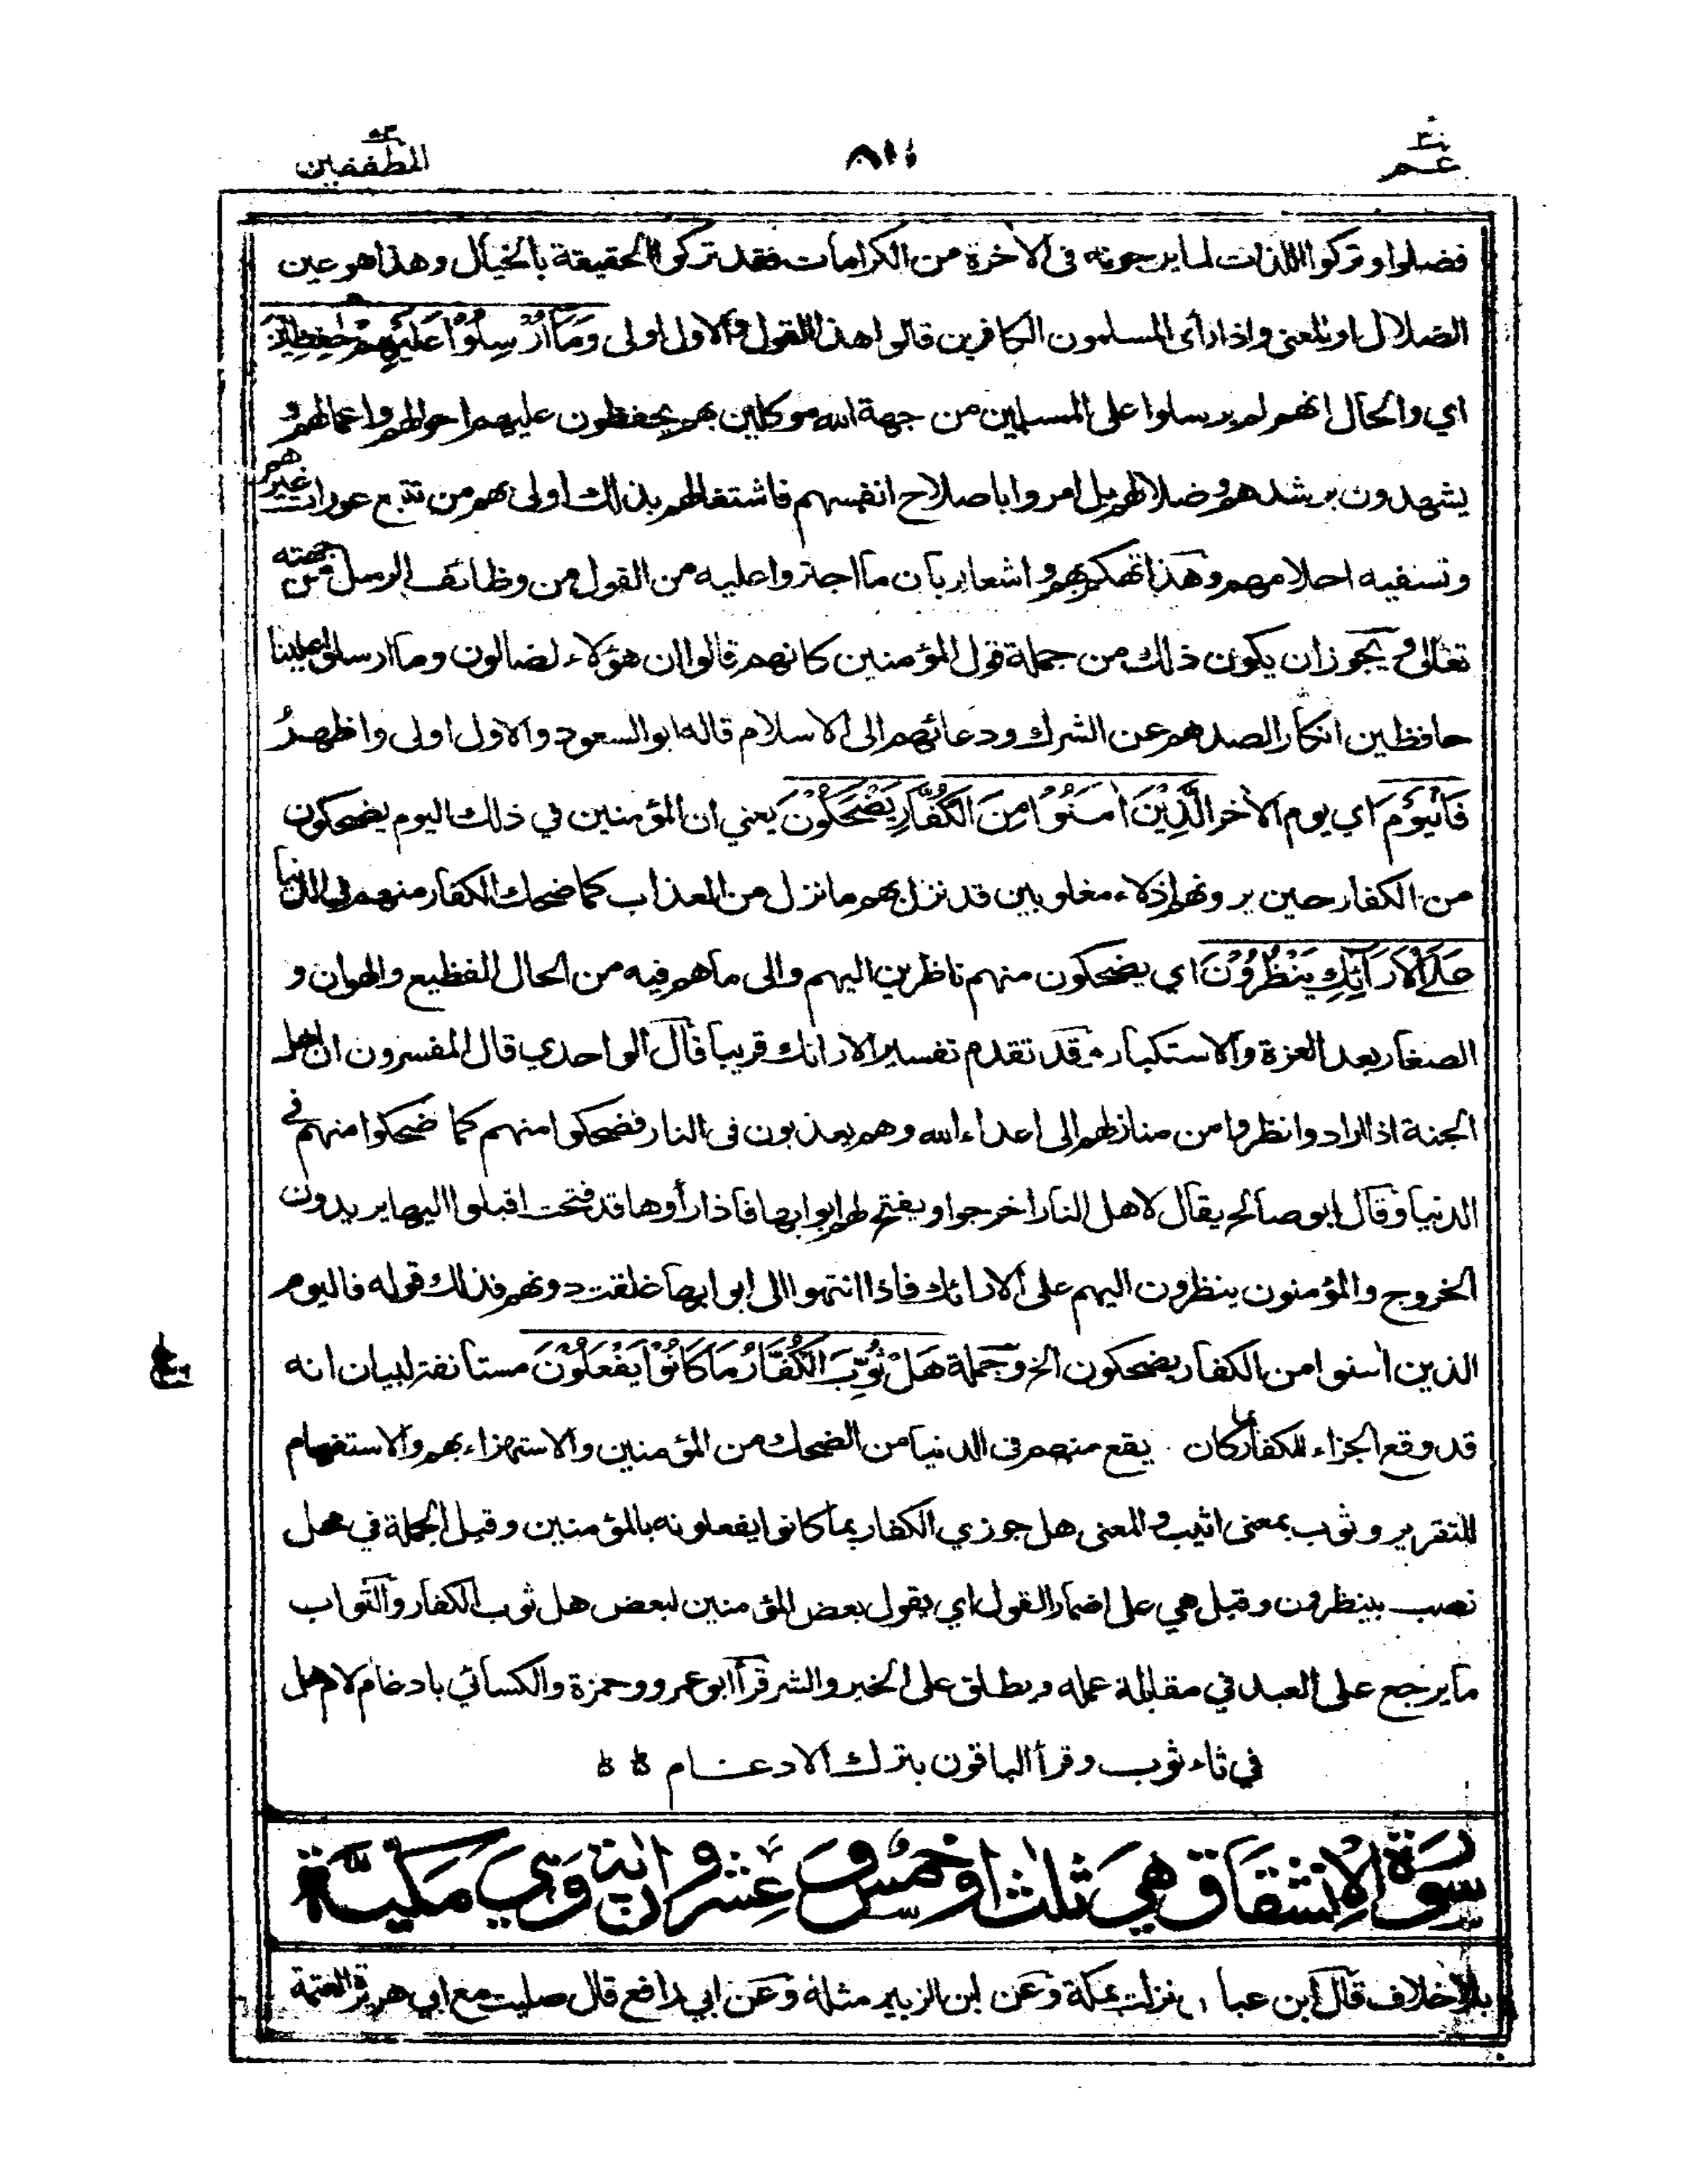 عم ٣٠
٨١١
المطففين ٨٣
فضلوا وتركوا اللذات لما يرجونه فى الآخرة من الكرامات فقد تركوا الحقيقة بالخيال وهذا هو عين
الضلال او المعنى واذا رأى المسلمون الكافرين قالوا هذا القول والاول اولى وَمَآ اُرْسِلُوْا عَلَيْهِمْ حٰفِظِيْنَ
اي والحال انهم لم يرسلوا على المسلمين من جهة الله موكلين بهم يحفظون عليهم احوالهم واعمالهم و
يشهدون برشدهم وضلالهم بل امروا باصلاح انفسهم فاشتغالهم بذلك اولى بهم من تتبع عورات غيرهم
وتسفيه احلامهم وهذا تهكم بهم واشعار بان ما اجترؤا عليه من القول من وظائف الرسل من جهته
تعالى ويجوز ان يكون ذلك من جملة قول المؤمنين كانهم قالوا ان هؤلاء لضالون وما ارسلوا علينا
حافظين انكارا لصدهم عن الشرك ودعائهم الى الاسلام قاله ابو السعود والاول اولى واظهر
فَالْيَوْمَ اي يوم الآخر الَّذِيْنَ اٰمَنُوْا مِنَ الْكُفَّارِ يَضْحَكُوْنَ يعني ان المؤمنين في ذلك اليوم يضحكون
من الكفار حين يرونهم اذلاء مغلوبين قد نزل بهم ما نزل من العذاب كما ضحك الكفار منهم في الدنيا
عَلَى الْاَرَآئِكِ يَنْظُرُوْنَ اي يضحكون منهم ناظرين اليهم والى ما هم فيه من الحال الفظيع والهوان و
الصغار بعد العزة والاستكبار وقد تقدم تفسير الارائك قريبا قال الواحدي قال المفسرون ان اهل
الجنة اذا ارادوا نظروا من منازلهم الى اعداء الله وهم يعذبون فى النار فضحكوا منهم كما ضحكوا منهم في
الدنيا وقال ابو صالح يقال لاهل النار اخرجوا ويفتح لهم ابوابها فاذا رأوها قد فتحت اقبلوا اليها يريدون
الخروج والمؤمنون ينظرون اليهم على الارائك فاذا انتهوا الى ابوابها غلقت دونهم فذلك قوله فاليوم
الذين اٰمنوا من الكفار يضحكون الخ وجملة هَلْ ثُوِّبَ الْكُفَّارُ مَا كَانُوْا يَفْعَلُوْنَ مستأنفة لبيان انه
قد وقع الجزاء للكفار بما كان يقع منهم فى الدنيا من الضحك من المؤمنين والاستهزاء بهم والاستفهام
للتقرير وثوب بمعنى اثيب والمعنى هل جوزي الكفار بما كانوا يفعلونه بالمؤمنين وقيل الجملة في محل
نصب بينظرون وقيل هي على اضمار القول اي يقول بعض المؤمنين لبعض هل ثوب الكفار والثواب
ما يرجع على العبد في مقابلة عمله ويطلق على الخير والشر قرأ ابو عمرو وحمزة والكسائي بادغام لام هل
في ثاء ثوب وقرأ الباقون بترك الادغام
سورة الانشقاق هي ثلث او خمس وعشرون اٰية وهي مكية
بلا خلاف قال ابن عباس نزلت بمكة وعن ابن الزبير مثله وعن ابي رافع قال صليت مع ابي هريرة العتمة